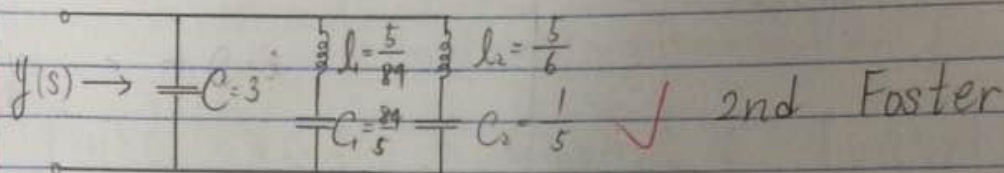 y(s) → C=3 l₁=5/84 l₂=5/6
C₁=84/5 C₂=1/5 ✓ 2nd Foster